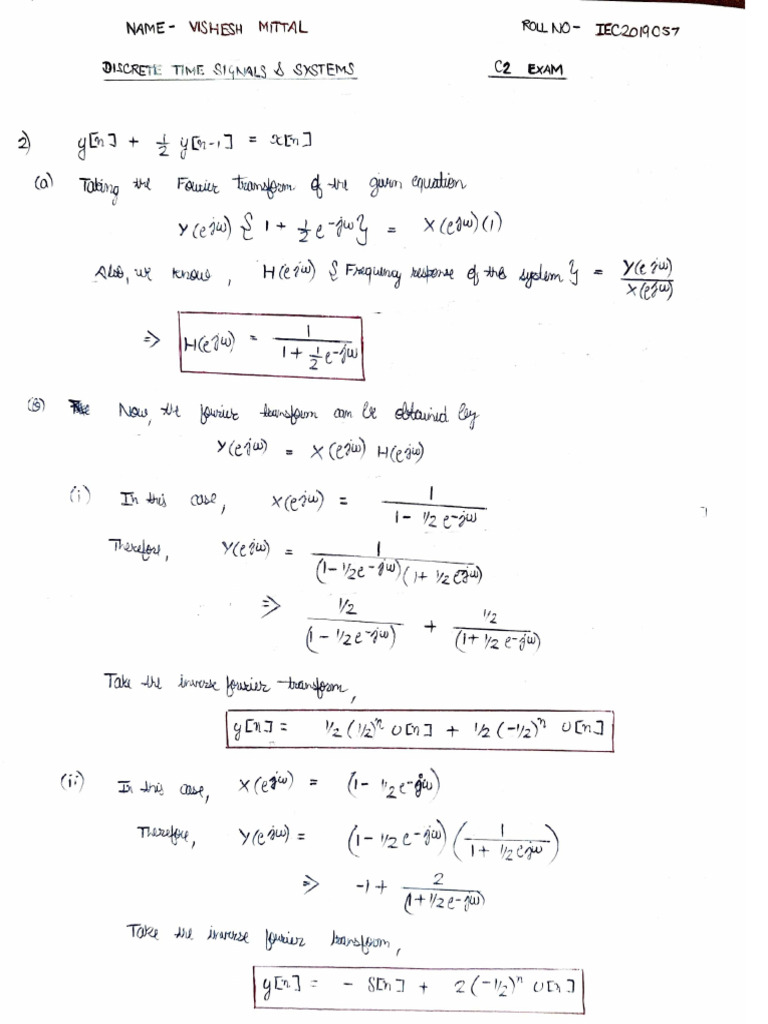 NAME- VISHESH MITTAL ROLL NO- IEC2019057
DISCRETE TIME SIGNALS & SYSTEMS C2 EXAM
2) y[n] + 1/2 y[n-1] = x[n]
(a) Taking the Fourier transform of the given equation
Y(e^jω) { 1 + 1/2 e^-jω } = X(e^jω)(1)
Also, we know, H(e^jω) { Frequency response of the system } = Y(e^jω)/X(e^jω)
=> H(e^jω) = 1/(1 + 1/2 e^-jω)
Now, the fourier transform can be obtained by
Y(e^jω) = X(e^jω) H(e^jω)
(i) In this case, X(e^jω) = 1/(1 - 1/2 e^-jω)
Therefore, Y(e^jω) = 1/((1 - 1/2 e^-jω)(1 + 1/2 e^jω))
=> 1/2/(1 - 1/2 e^-jω) + 1/2/(1 + 1/2 e^-jω)
Take the inverse fourier transform,
y[n] = 1/2 (1/2)^n U[n] + 1/2 (-1/2)^n U[n]
(ii) In this case, X(e^jω) = (1 - 1/2 e^-jω)
Therefore, Y(e^jω) = (1 - 1/2 e^-jω) (1/(1 + 1/2 e^jω))
=> -1 + 2/(1 + 1/2 e^-jω)
Take the inverse fourier transform,
y[n] = - δ[n] + 2 (-1/2)^n U[n]